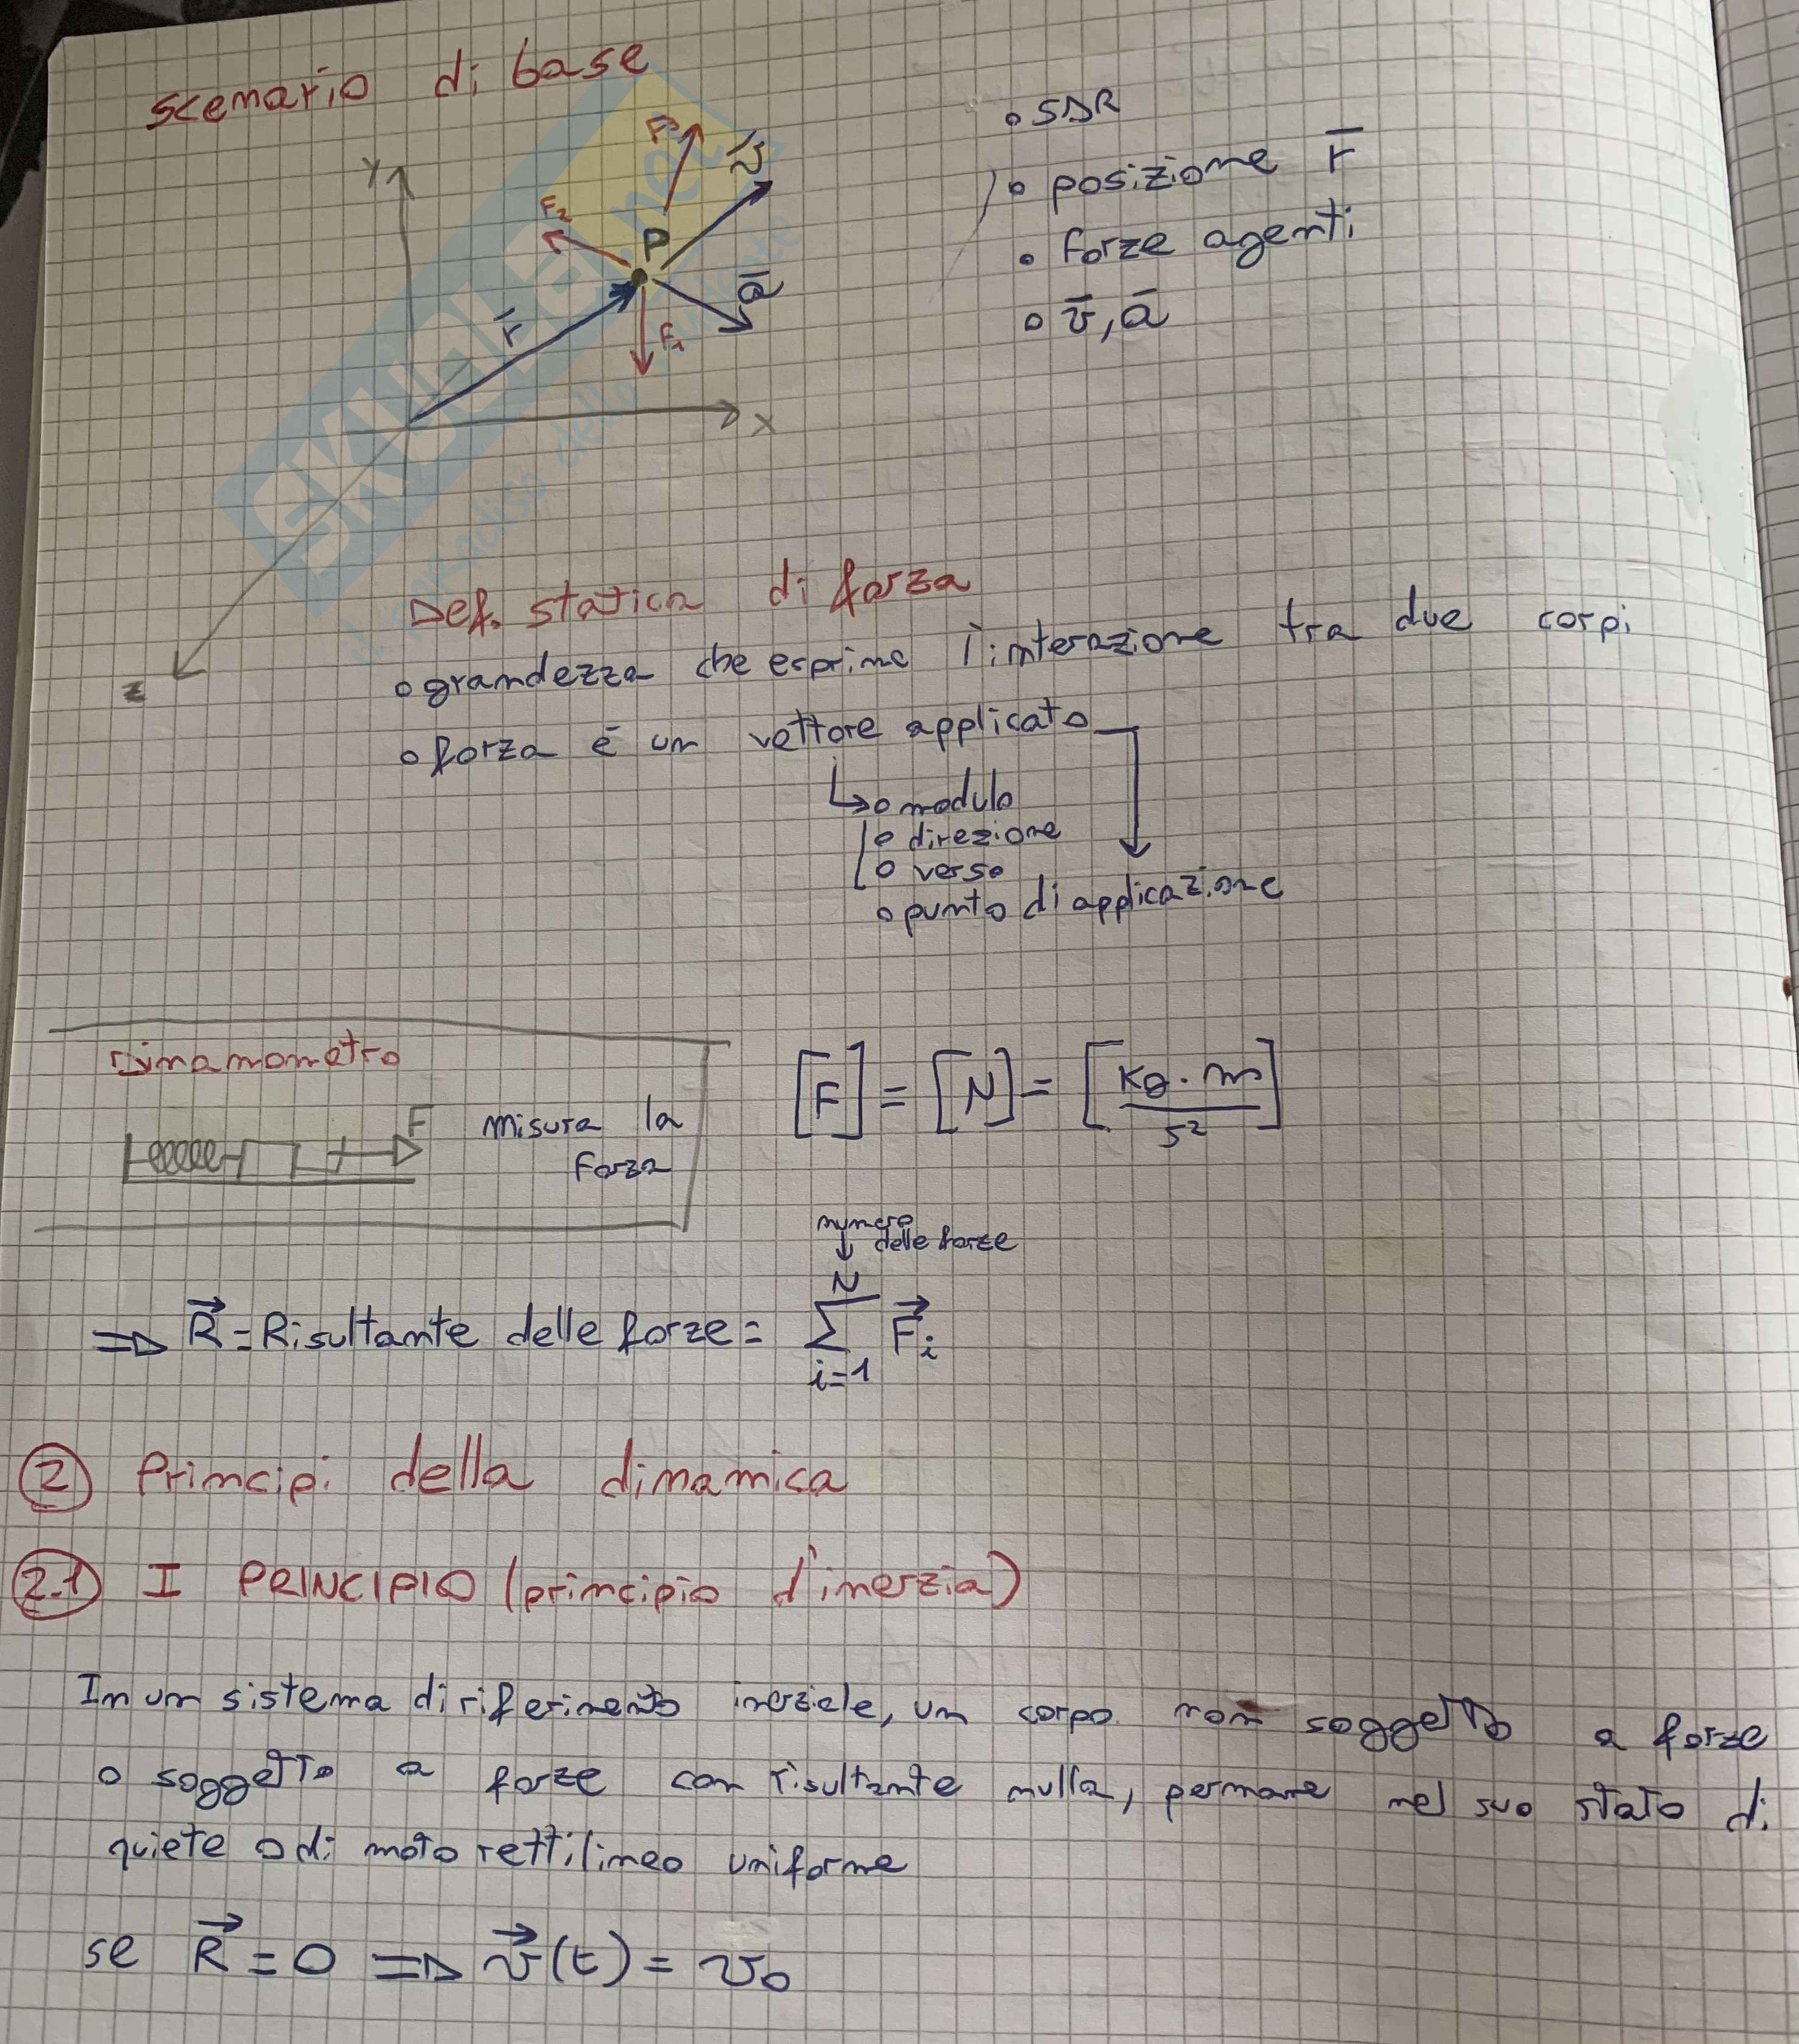 scenario di base
• SDR
• posizione r̅
• forze agenti
• v̅, a̅
Y
F3
v̅
F2
P
a̅
r̅
F1
X
z
SKUOLA.net
il paradiso dello studente
Def. statica di forza
• grandezza che esprime l'interazione tra due corpi
• forza è un vettore applicato
↳ • modulo
• direzione
• verso
• punto di applicazione
Dinamometro
F misura la
forza
[F] = [N] = [Kg · m / s²]
numero
delle forze
⇒ R⃗ = Risultante delle forze = ∑ᵢ₌₁ᴺ F⃗ᵢ
② Principi della dinamica
2.1 I PRINCIPIO (principio d'inerzia)
In un sistema di riferimento inerziale, un corpo non soggetto a forze
o soggetto a forze con risultante nulla, permane nel suo stato di
quiete o di moto rettilineo uniforme
se R⃗ = 0 ⇒ v⃗(t) = v₀